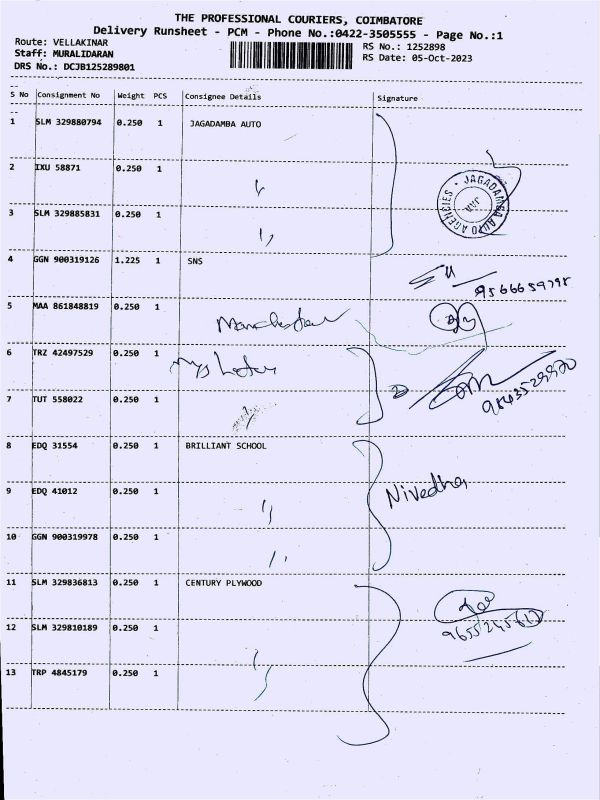 THE PROFESSIONAL COURIERS, COIMBATORE
Delivery Runsheet - PCM - Phone No.:0422-3505555 - Page No.:1
Route: VELLAKINAR
Staff: MURALIDARAN
DRS No.: DCJB125289801
RS No.: 1252898
RS Date: 05-Oct-2023
S No Consignment No Weight PCS Consignee Details Signature
1 SLM 329880794 0.250 1 JAGADAMBA AUTO
2 IXU 58871 0.250 1
JAGADAMBA AUTO AGENCIES
3 SLM 329885831 0.250 1
4 GGN 900319126 1.225 1 SNS
5 MAA 861848819 0.250 1
6 TRZ 42497529 0.250 1
7 TUT 558022 0.250 1
8 EDQ 31554 0.250 1 BRILLIANT SCHOOL
9 EDQ 41012 0.250 1 Nivedha
10 GGN 900319978 0.250 1
11 SLM 329836813 0.250 1 CENTURY PLYWOOD
12 SLM 329810189 0.250 1
13 TRP 4845179 0.250 1